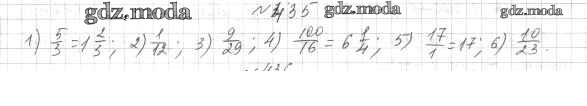 gdz.moda №1435 gdz.moda gdz.moda
1) 5/3 = 1 2/3; 2) 1/12; 3) 9/29; 4) 100/16 = 6 1/4; 5) 17/1 = 17; 6) 10/23.